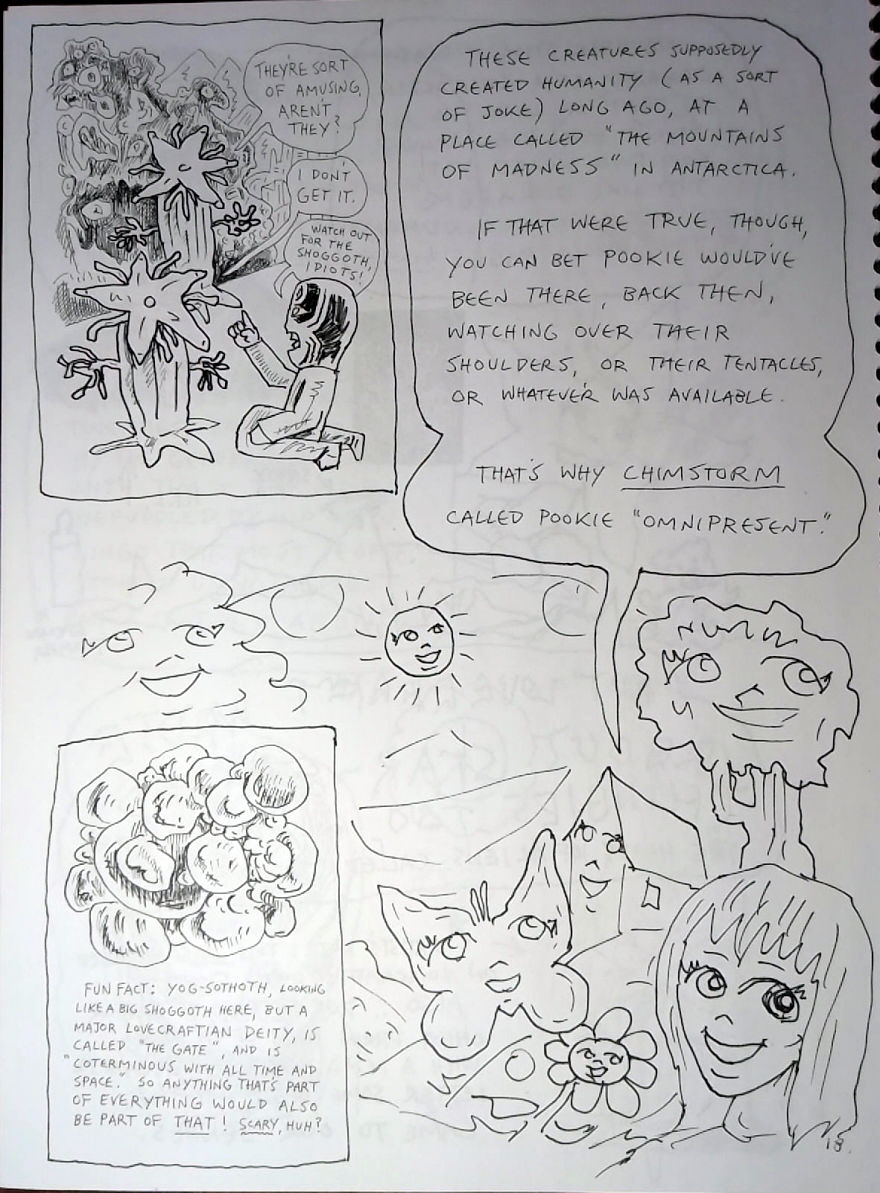 THEY'RE SORT
OF AMUSING,
AREN'T
THEY?
I DON'T
GET IT.
WATCH OUT
FOR THE
SHOGGOTH,
IDIOTS!
THESE CREATURES SUPPOSEDLY
CREATED HUMANITY (AS A SORT
OF JOKE) LONG AGO, AT A
PLACE CALLED "THE MOUNTAINS
OF MADNESS" IN ANTARCTICA.
IF THAT WERE TRUE, THOUGH,
YOU CAN BET POOKIE WOULD'VE
BEEN THERE, BACK THEN,
WATCHING OVER THEIR
SHOULDERS, OR THEIR TENTACLES,
OR WHATEVER WAS AVAILABLE.
THAT'S WHY CHIMSTORM
CALLED POOKIE "OMNIPRESENT."
FUN FACT: YOG-SOTHOTH, LOOKING
LIKE A BIG SHOGGOTH HERE, BUT A
MAJOR LOVECRAFTIAN DEITY, IS
CALLED "THE GATE", AND IS
"COTERMINOUS WITH ALL TIME AND
SPACE." SO ANYTHING THAT'S PART
OF EVERYTHING WOULD ALSO
BE PART OF THAT! SCARY, HUH?
18.